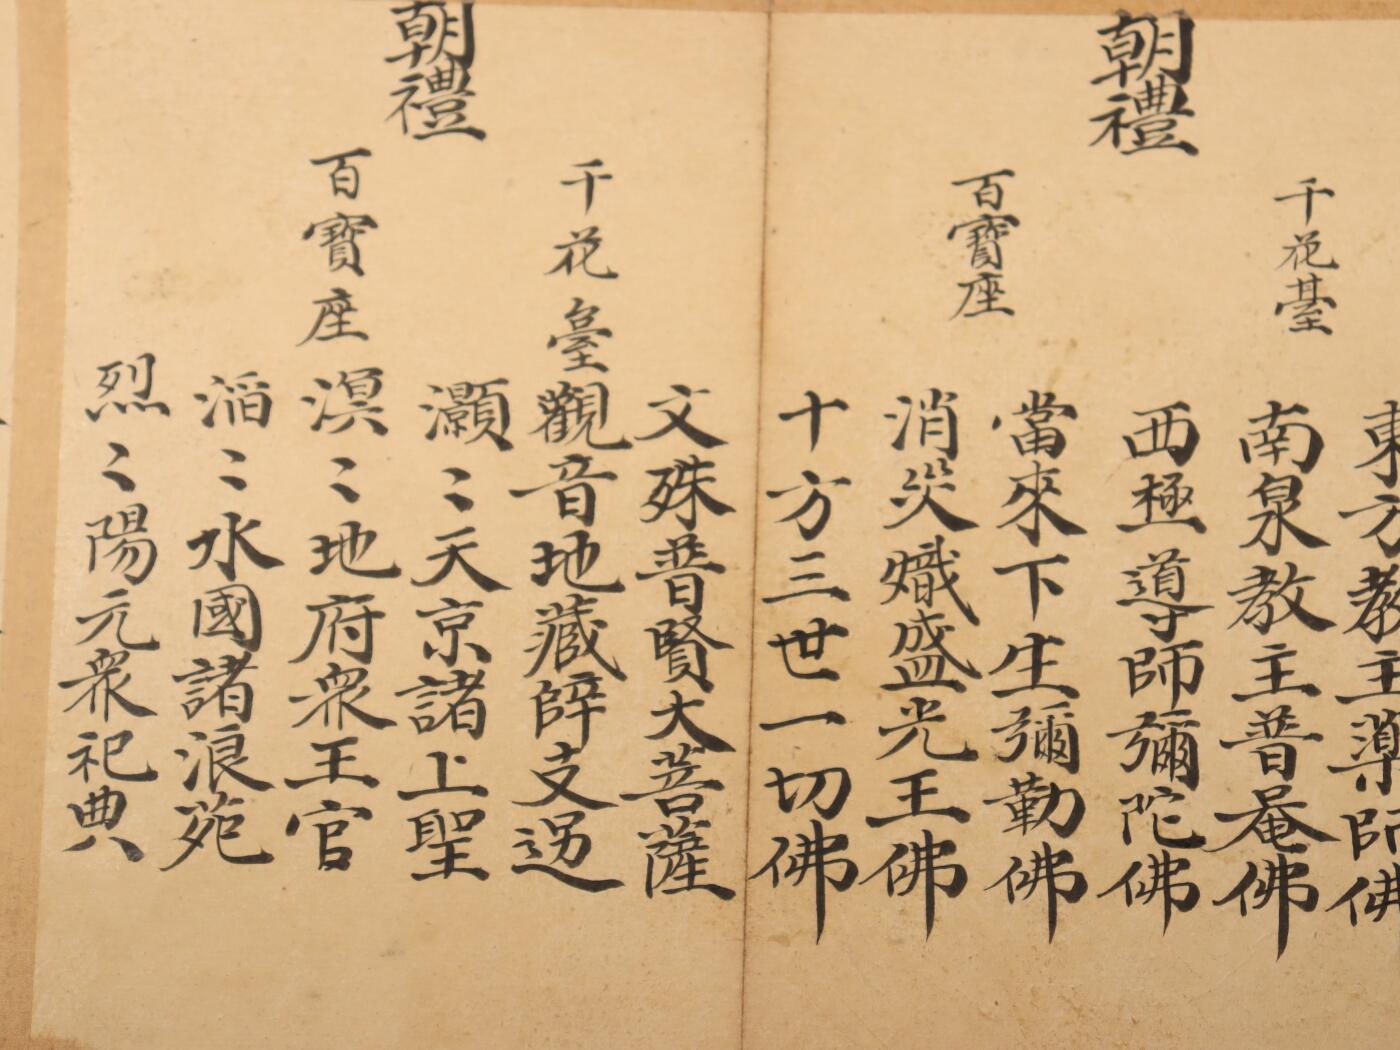 朝禮
千花臺
百寶座
東方教主藥師佛
南泉教主普菴佛
西極導師彌陀佛
當來下生彌勒佛
消災熾盛光王佛
十方三世一切佛
朝禮
千花臺
百寶座
文殊普賢大菩薩
觀音地藏辟支迦
灝〻天京諸上聖
溟〻地府衆王官
滔〻水國諸浪苑
烈〻陽元衆祀典